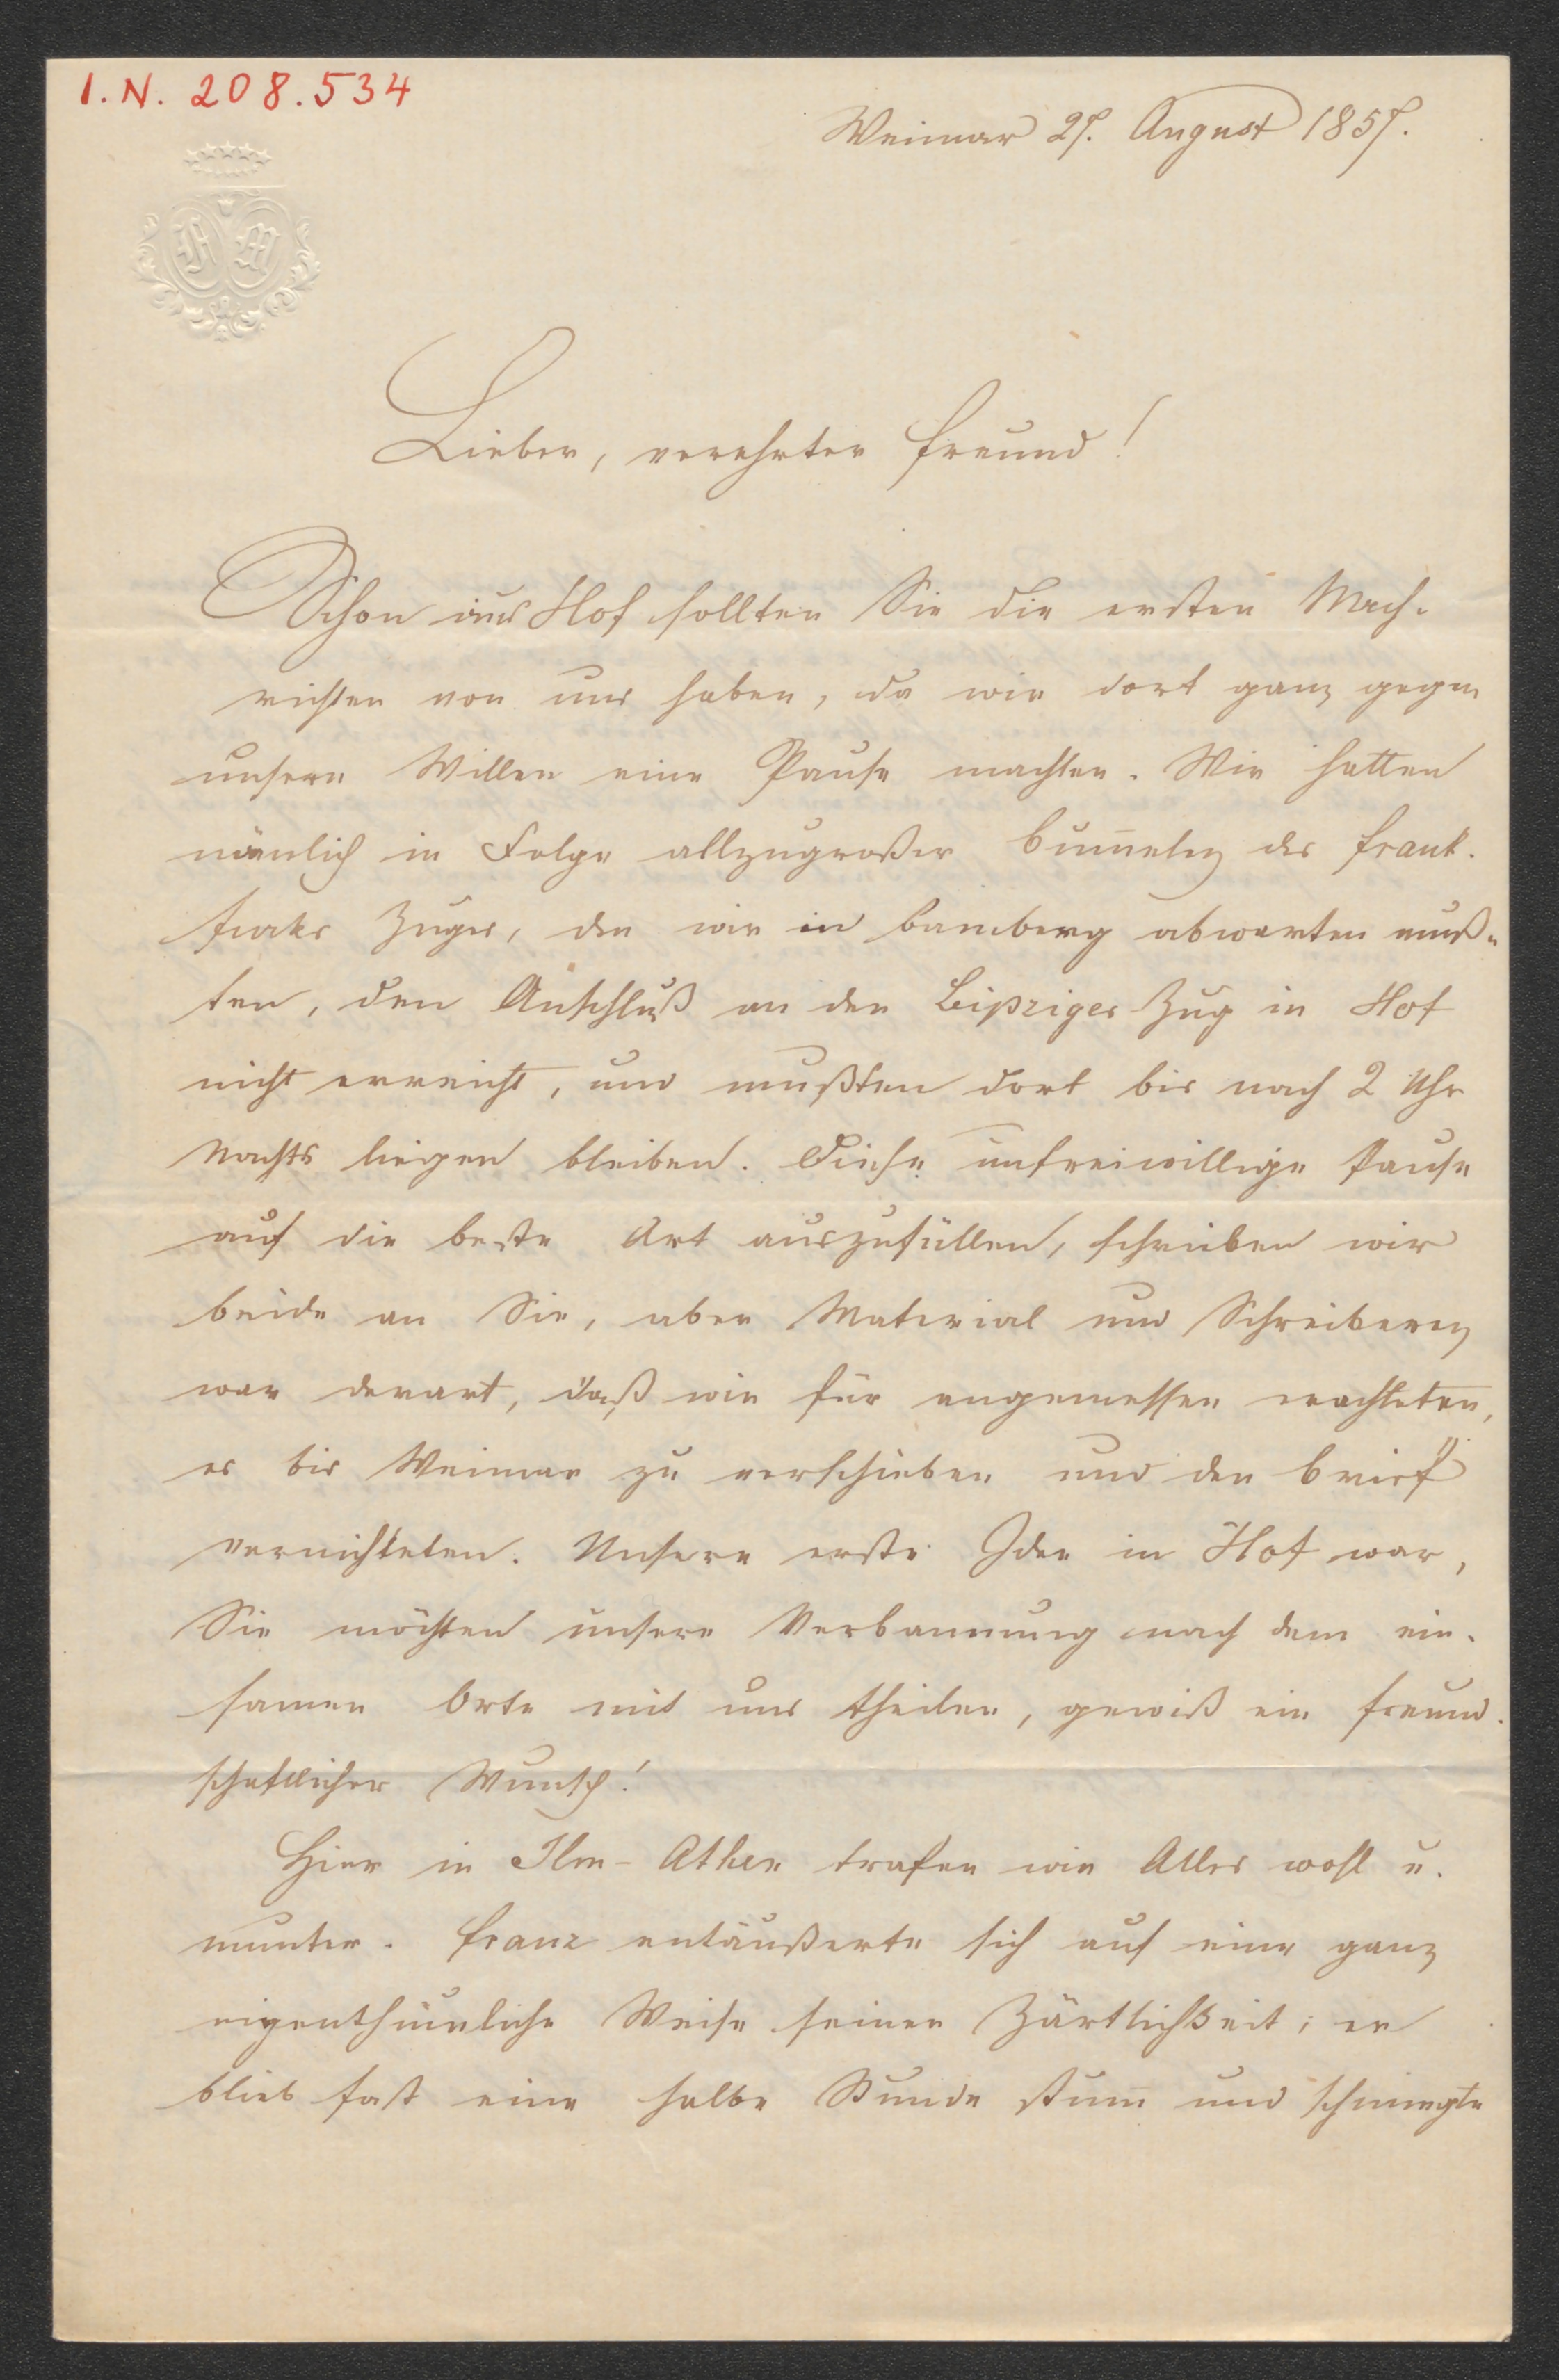 I.N. 208.534
Weimar 27. August 1857.
Lieber, verehrter Freund!
Schon aus Hof sollten Sie die ersten Nach-
richten von uns haben, da wir dort ganz gegen
unsern Willen eine Pause machten. Wir hatten
nämlich in Folge allzugroßer Bum̅eley des Frank-
furter Zuges, den wir in Bamberg abwarten muß-
ten, den Anschluß an den Leipziger Zug in Hof
nicht erreicht, und mußten dort bis nach 2 Uhr
Nachts liegen bleiben. Diese unfreiwillige Pause
auf die beste Art auszufüllen, schrieben wir
beide an Sie, aber Material und Schreiberey
war derart, daß wir für angemessen erachteten,
es bis Weimar zu verschieben und den Brief
vernichteten. Unsere erste Idee in Hof war,
Sie möchten unsere Verbannung nach dem ein-
samen Orte mit uns theilen, gewiß ein freund-
schaftlicher Wunsch!
Hier in Ilm-Athen trafen wir Alles wohl u.
munter. Franz entäußerte sich auf eine ganz
eigenthümliche Weise seiner Zärtlichkeit; er
blieb fast eine halbe Stunde stum̅ und schmiegte